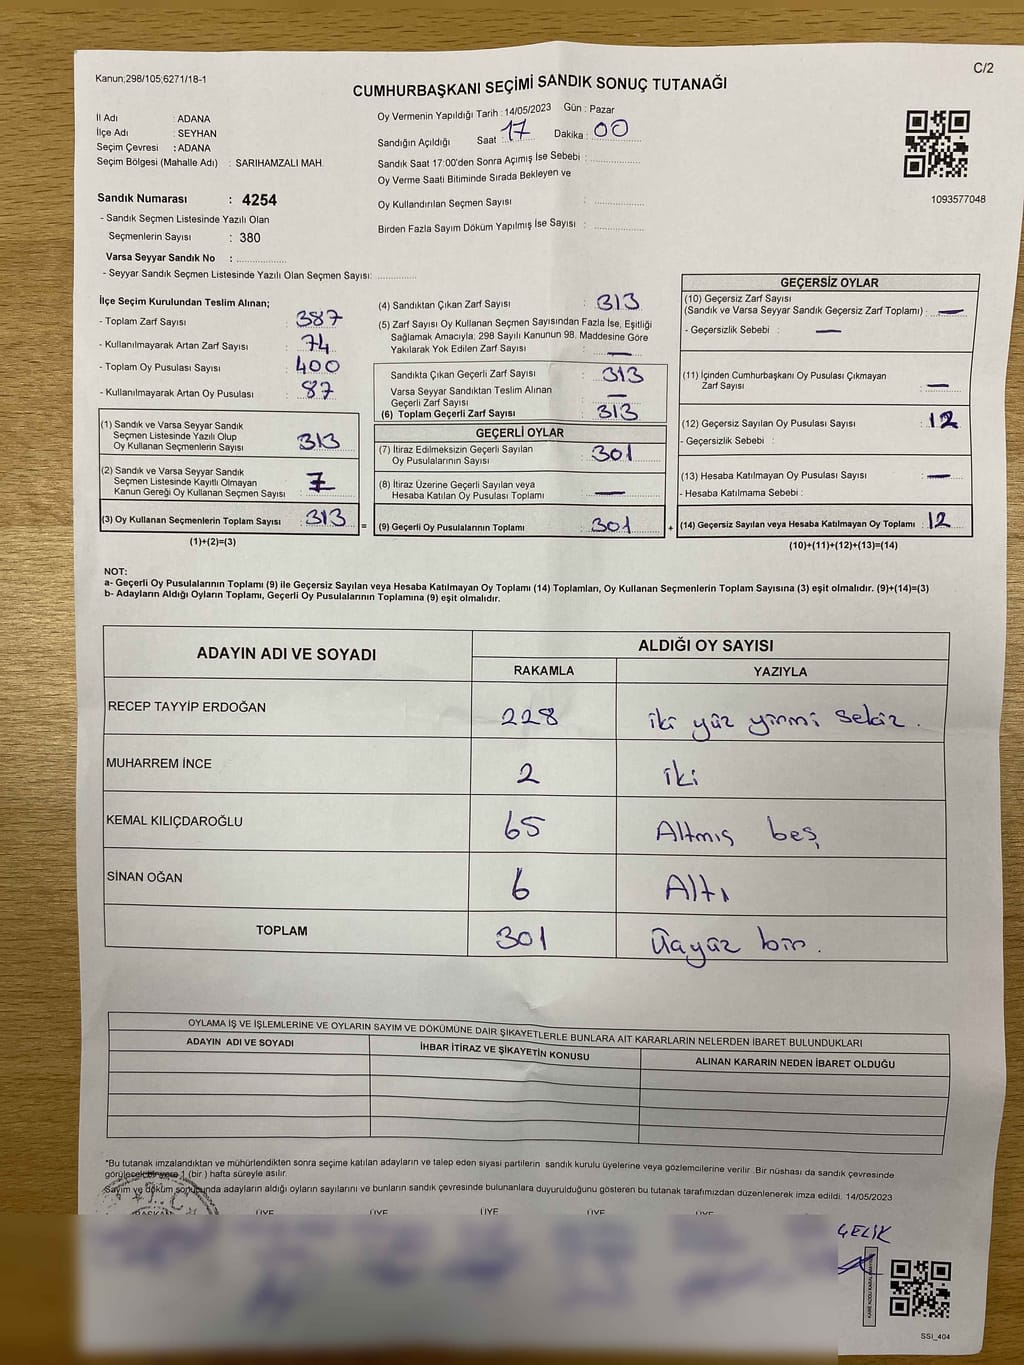 Kanun;298/105;6271/18-1
C/2
CUMHURBAŞKANI SEÇİMİ SANDIK SONUÇ TUTANAĞI
İl Adı : ADANA
İlçe Adı : SEYHAN
Seçim Çevresi : ADANA
Seçim Bölgesi (Mahalle Adı) : SARIHAMZALI MAH.
Sandık Numarası : 4254
- Sandık Seçmen Listesinde Yazılı Olan
Seçmenlerin Sayısı : 380
Varsa Seyyar Sandık No :
- Seyyar Sandık Seçmen Listesinde Yazılı Olan Seçmen Sayısı:
Oy Vermenin Yapıldığı Tarih : 14/05/2023 Gün : Pazar
Sandığın Açıldığı Saat : 17 Dakika : 00
Sandık Saat 17:00'den Sonra Açımış İse Sebebi :
Oy Verme Saati Bitiminde Sırada Bekleyen ve
Oy Kullandırılan Seçmen Sayısı :
Birden Fazla Sayım Döküm Yapılmış İse Sayısı :
1093577048
İlçe Seçim Kurulundan Teslim Alınan;
- Toplam Zarf Sayısı : 387
- Kullanılmayarak Artan Zarf Sayısı : 74
- Toplam Oy Pusulası Sayısı : 400
- Kullanılmayarak Artan Oy Pusulası : 87
(1) Sandık ve Varsa Seyyar Sandık
Seçmen Listesinde Yazılı Olup
Oy Kullanan Seçmenlerin Sayısı : 313
(2) Sandık ve Varsa Seyyar Sandık
Seçmen Listesinde Kayıtlı Olmayan
Kanun Gereği Oy Kullanan Seçmen Sayısı :
(3) Oy Kullanan Seçmenlerin Toplam Sayısı : 313 =
(1)+(2)=(3)
(4) Sandıktan Çıkan Zarf Sayısı : 313
(5) Zarf Sayısı Oy Kullanan Seçmen Sayısından Fazla İse, Eşitliği
Sağlamak Amacıyla; 298 Sayılı Kanunun 98. Maddesine Göre
Yakılarak Yok Edilen Zarf Sayısı : —
Sandıkta Çıkan Geçerli Zarf Sayısı : 313
Varsa Seyyar Sandıktan Teslim Alınan
Geçerli Zarf Sayısı : —
(6) Toplam Geçerli Zarf Sayısı : 313
GEÇERLİ OYLAR
(7) İtiraz Edilmeksizin Geçerli Sayılan
Oy Pusulalarının Sayısı : 301
(8) İtiraz Üzerine Geçerli Sayılan veya
Hesaba Katılan Oy Pusulası Toplamı : —
(9) Geçerli Oy Pusulalarının Toplamı : 301 +
GEÇERSİZ OYLAR
(10) Geçersiz Zarf Sayısı
(Sandık ve Varsa Seyyar Sandık Geçersiz Zarf Toplamı) : —
- Geçersizlik Sebebi : —
(11) İçinden Cumhurbaşkanı Oy Pusulası Çıkmayan
Zarf Sayısı : —
(12) Geçersiz Sayılan Oy Pusulası Sayısı : 12
- Geçersizlik Sebebi :
(13) Hesaba Katılmayan Oy Pusulası Sayısı : —
- Hesaba Katılmama Sebebi :
(14) Geçersiz Sayılan veya Hesaba Katılmayan Oy Toplamı : 12
(10)+(11)+(12)+(13)=(14)
NOT:
a- Geçerli Oy Pusulalarının Toplamı (9) ile Geçersiz Sayılan veya Hesaba Katılmayan Oy Toplamı (14) Toplamları, Oy Kullanan Seçmenlerin Toplam Sayısına (3) eşit olmalıdır. (9)+(14)=(3)
b- Adayların Aldığı Oyların Toplamı, Geçerli Oy Pusulalarının Toplamına (9) eşit olmalıdır.
ADAYIN ADI VE SOYADI
ALDIĞI OY SAYISI
RAKAMLA YAZIYLA
RECEP TAYYİP ERDOĞAN 228 iki yüz yirmi sekiz.
MUHARREM İNCE 2 iki
KEMAL KILIÇDAROĞLU 65 Altmış beş
SİNAN OĞAN 6 Altı
TOPLAM 301 Üçyüz bir.
OYLAMA İŞ VE İŞLEMLERİNE VE OYLARIN SAYIM VE DÖKÜMÜNE DAİR ŞİKAYETLERLE BUNLARA AİT KARARLARIN NELERDEN İBARET BULUNDUKLARI
ADAYIN ADI VE SOYADI İHBAR İTİRAZ VE ŞİKAYETİN KONUSU ALINAN KARARIN NEDEN İBARET OLDUĞU
*Bu tutanak imzalandıktan ve mühürlendikten sonra seçime katılan adayların ve talep eden siyasi partilerin sandık kurulu üyelerine veya gözlemcilerine verilir. Bir nüshası da sandık çevresinde
görülecek bir yere 1 (bir) hafta süreyle asılır.
Sayım ve döküm sonucunda adayların aldığı oyların sayılarını ve bunların sandık çevresinde bulunanlara duyurulduğunu gösteren bu tutanak tarafımızdan düzenlenerek imza edildi. 14/05/2023
T.C.
BAŞKAN ÜYE ÜYE ÜYE ÜYE ÜYE
ÇELİK
SSI_404